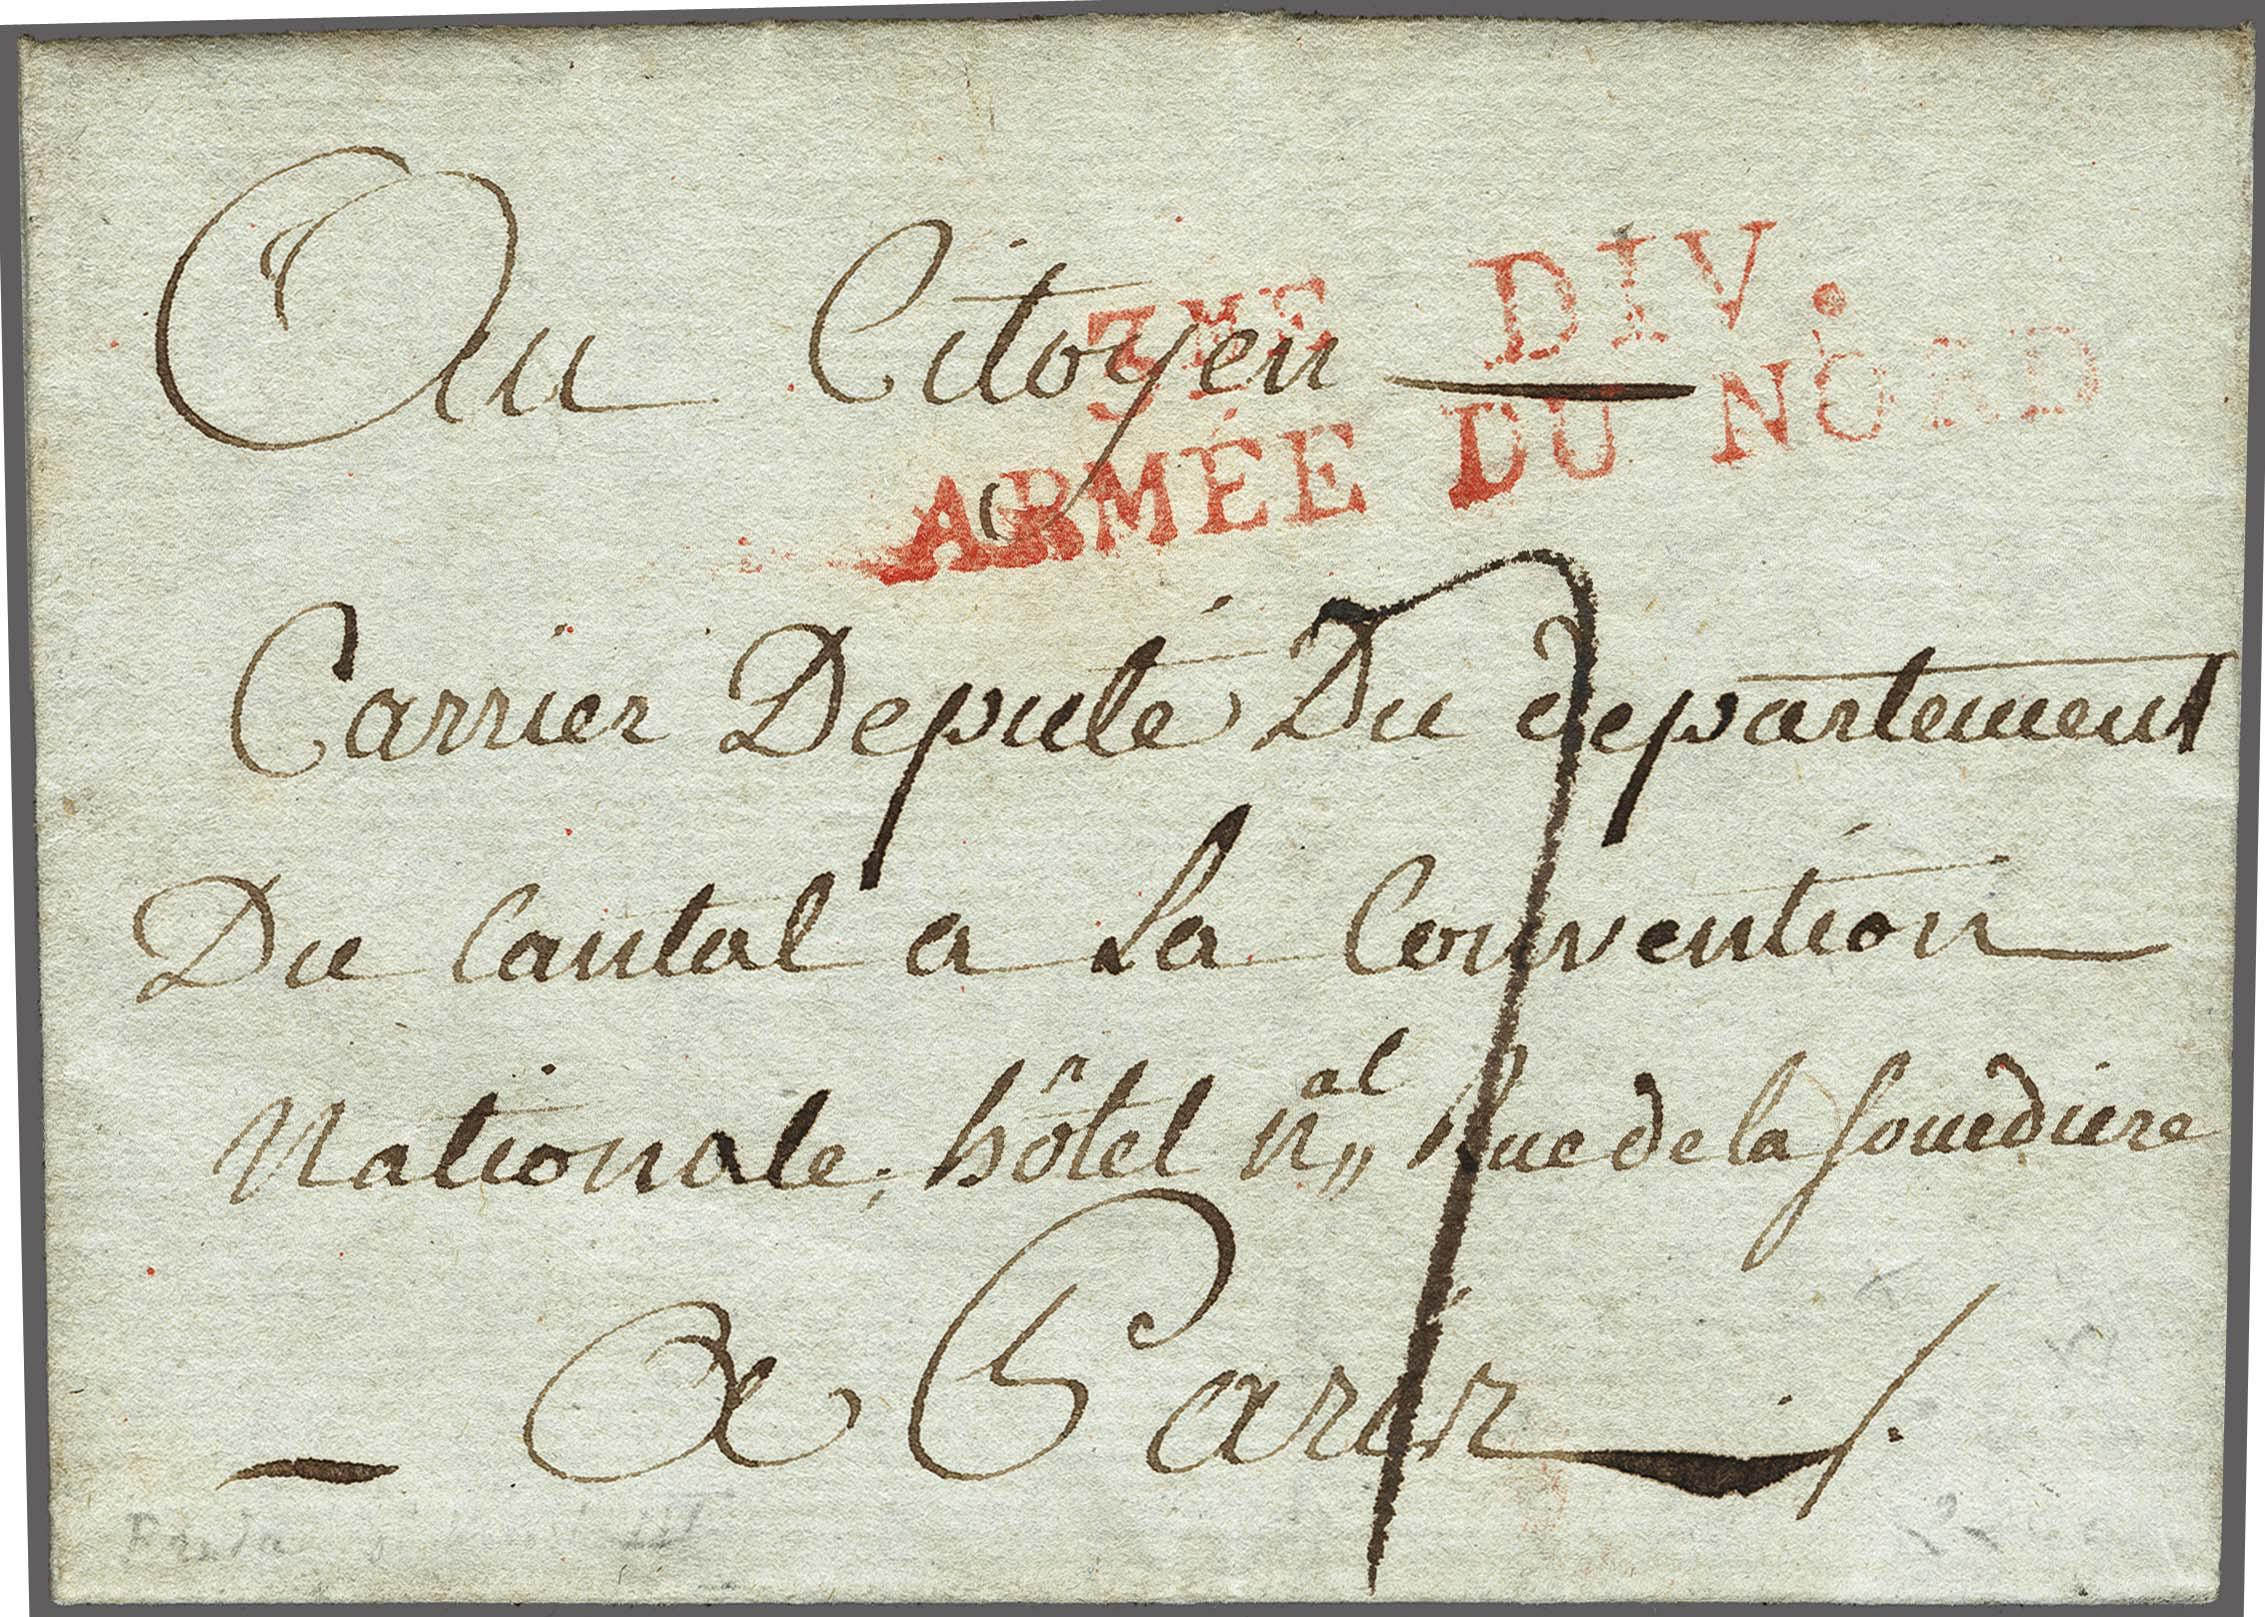 Au Citoyen
3ME DIV.
ARMÉE DU NORD
Carrier Deputé Du departement
Du Cantal a La Convention
Nationale, hôtel n.al Rue de la Sourdiere
a Paris
7